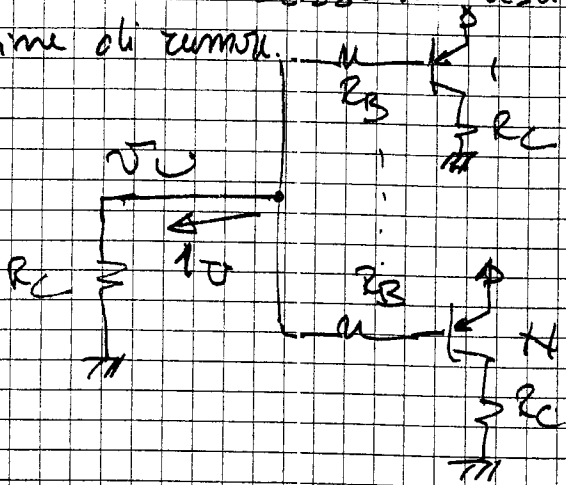 ine di rumore.
1
RB
RC
vU
iU
RC
RB
N
RC